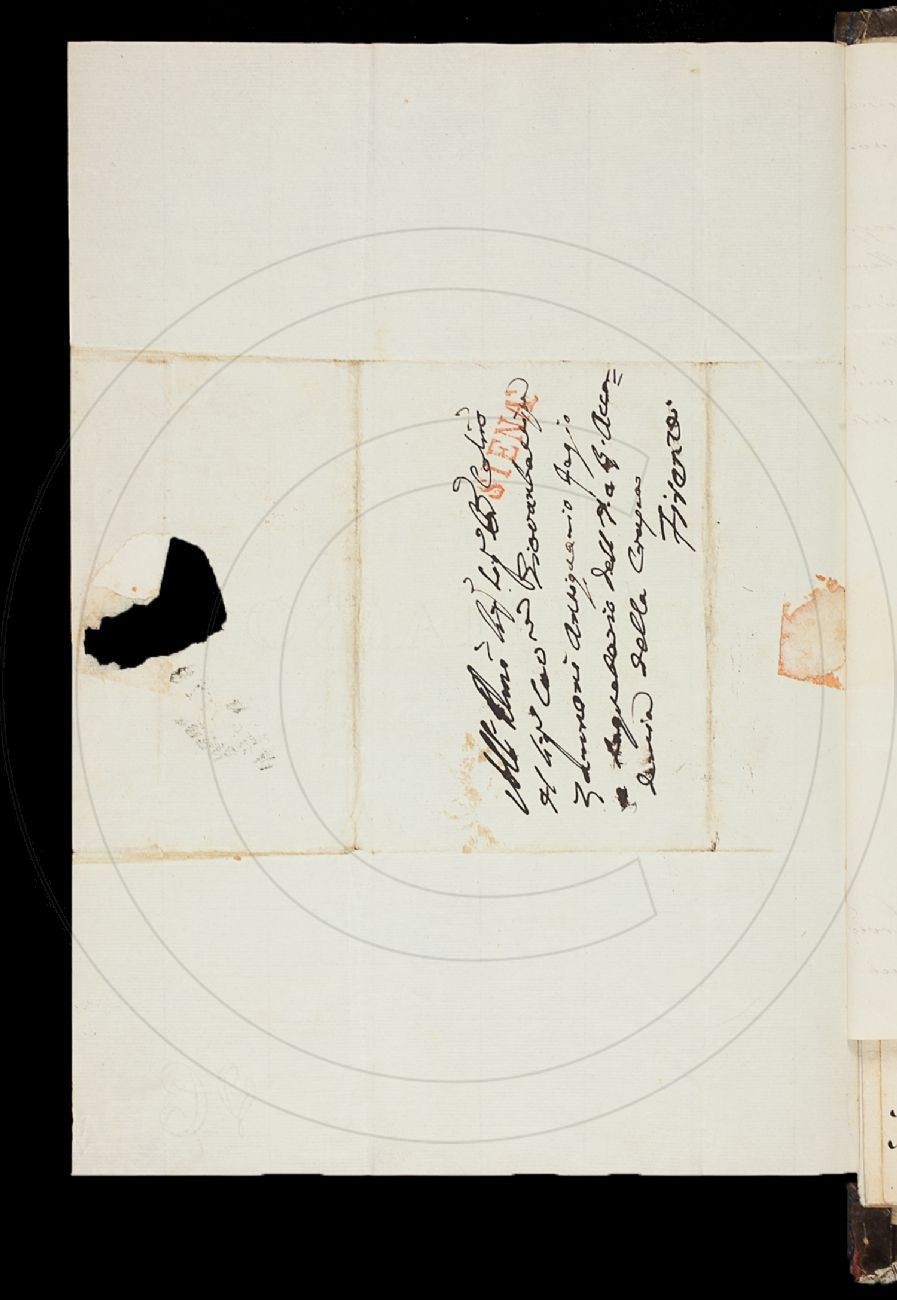 SIENA
All' Illmo Sigr Sigr
Il Sigr Cavre Giovanbattista
Zannoni Antiquario Regio
e Segretario dell' I. e R. Acca=
demia della Crusca
Firenze